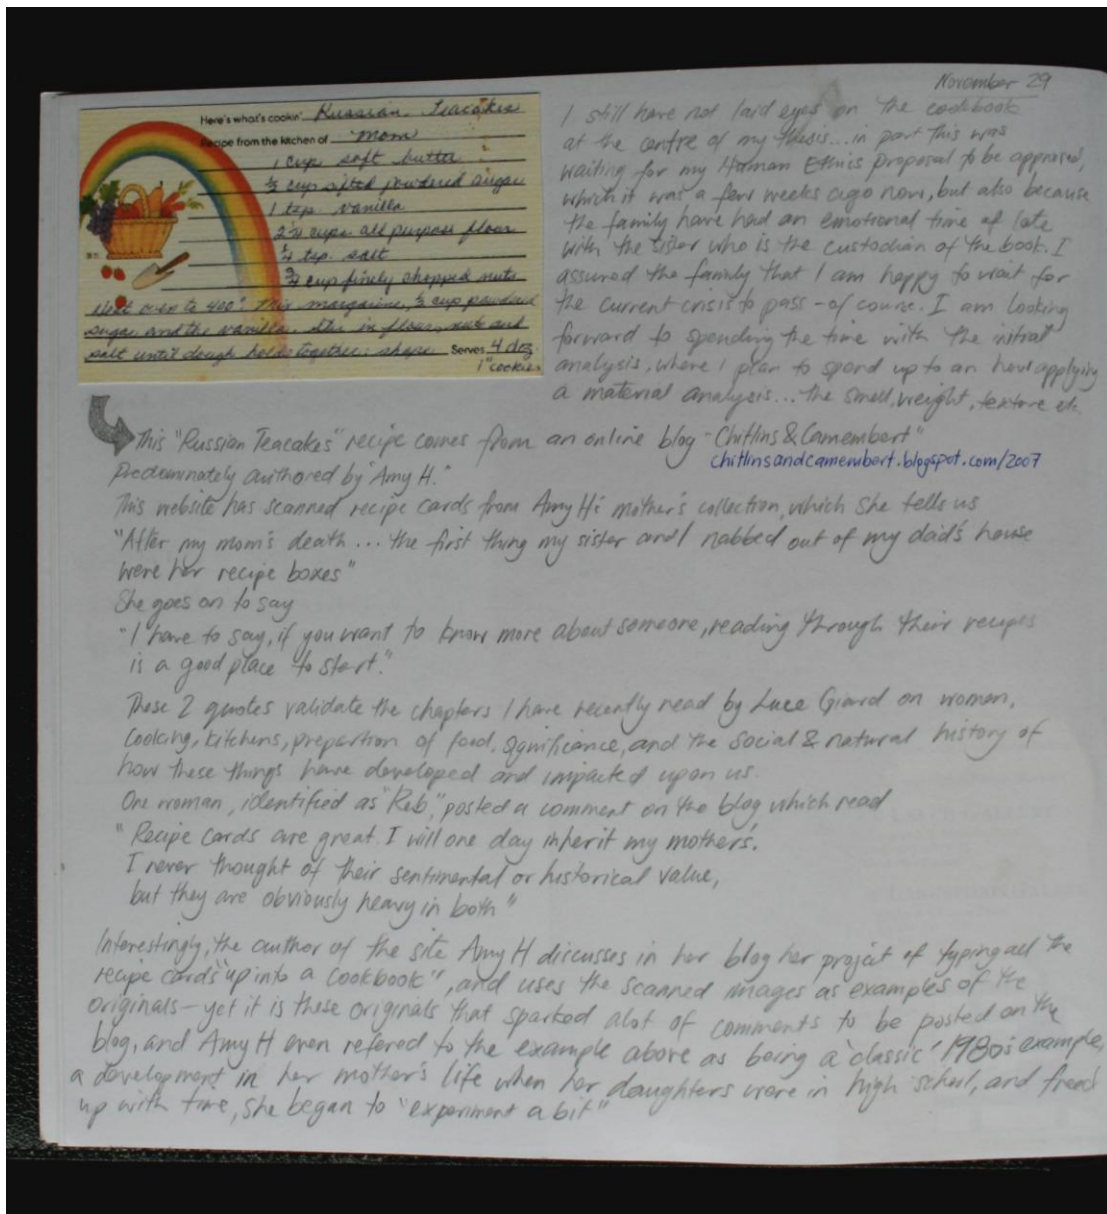 Here's what's cookin' Russian Teacakes
Recipe from the kitchen of Mom
1 cup soft butter
½ cup sifted powdered sugar
1 tsp vanilla
2¼ cups all purpose flour
¼ tsp. salt
¾ cup finely chopped nuts
Heat oven to 400°. Mix margarine, ½ cup powdered
sugar and the vanilla. Stir in flour, nuts and
salt until dough holds together; shape Serves 4 doz.
1" cookies
November 29
I still have not laid eyes on the cookbook
at the centre of my thesis... in part this was
waiting for my Human Ethics proposal to be approved,
which it was a few weeks ago now, but also because
the family have had an emotional time of late
with the sister who is the custodian of the book. I
assured the family that I am happy to wait for
the current crisis to pass - of course. I am looking
forward to spending the time with the initial
analysis, where I plan to spend up to an hour applying
a material analysis... the smell, weight, texture etc.
This "Russian Teacakes" recipe comes from an online blog - Chitlins & Camembert"
chitlinsandcamembert.blogspot.com/2007
Predominately authored by "Amy H."
This website has scanned recipe cards from Amy H's mother's collection, which she tells us
"After my mom's death ... the first thing my sister and I nabbed out of my dad's house
were her recipe boxes"
She goes on to say
"I have to say, if you want to know more about someone, reading through their recipes
is a good place to start."
These 2 quotes validate the chapters I have recently read by Luce Giard on women,
cooking, kitchens, prepartion of food, significance, and the social & natural history of
how these things have developed and impacted upon us.
One woman, identified as "Reb," posted a comment on the blog which read
"Recipe cards are great. I will one day inherit my mothers'.
I never thought of their sentimental or historical value,
but they are obviously heavy in both"
Interestingly, the author of the site Amy H discusses in her blog her project of typing all the
recipe cards "up into a cookbook", and uses the scanned images as examples of the
originals - yet it is these originals that sparked alot of comments to be posted on the
blog, and Amy H even refered to the example above as being a 'classic' 1980's example,
a development in her mother's life when her daughters were in high school, and freed
up with time, she began to "experiment a bit"